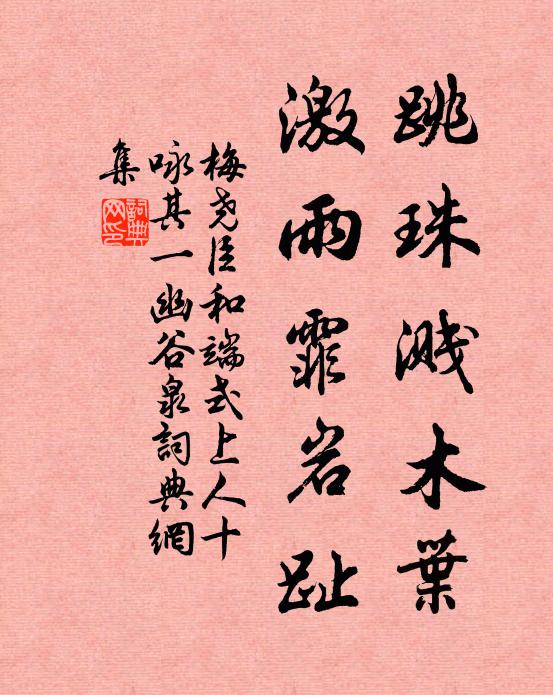 跳珠濺木葉
激雨霏岩趾
梅尧臣和端式上人十
咏其一幽谷泉詞典網
集
詞典
网印